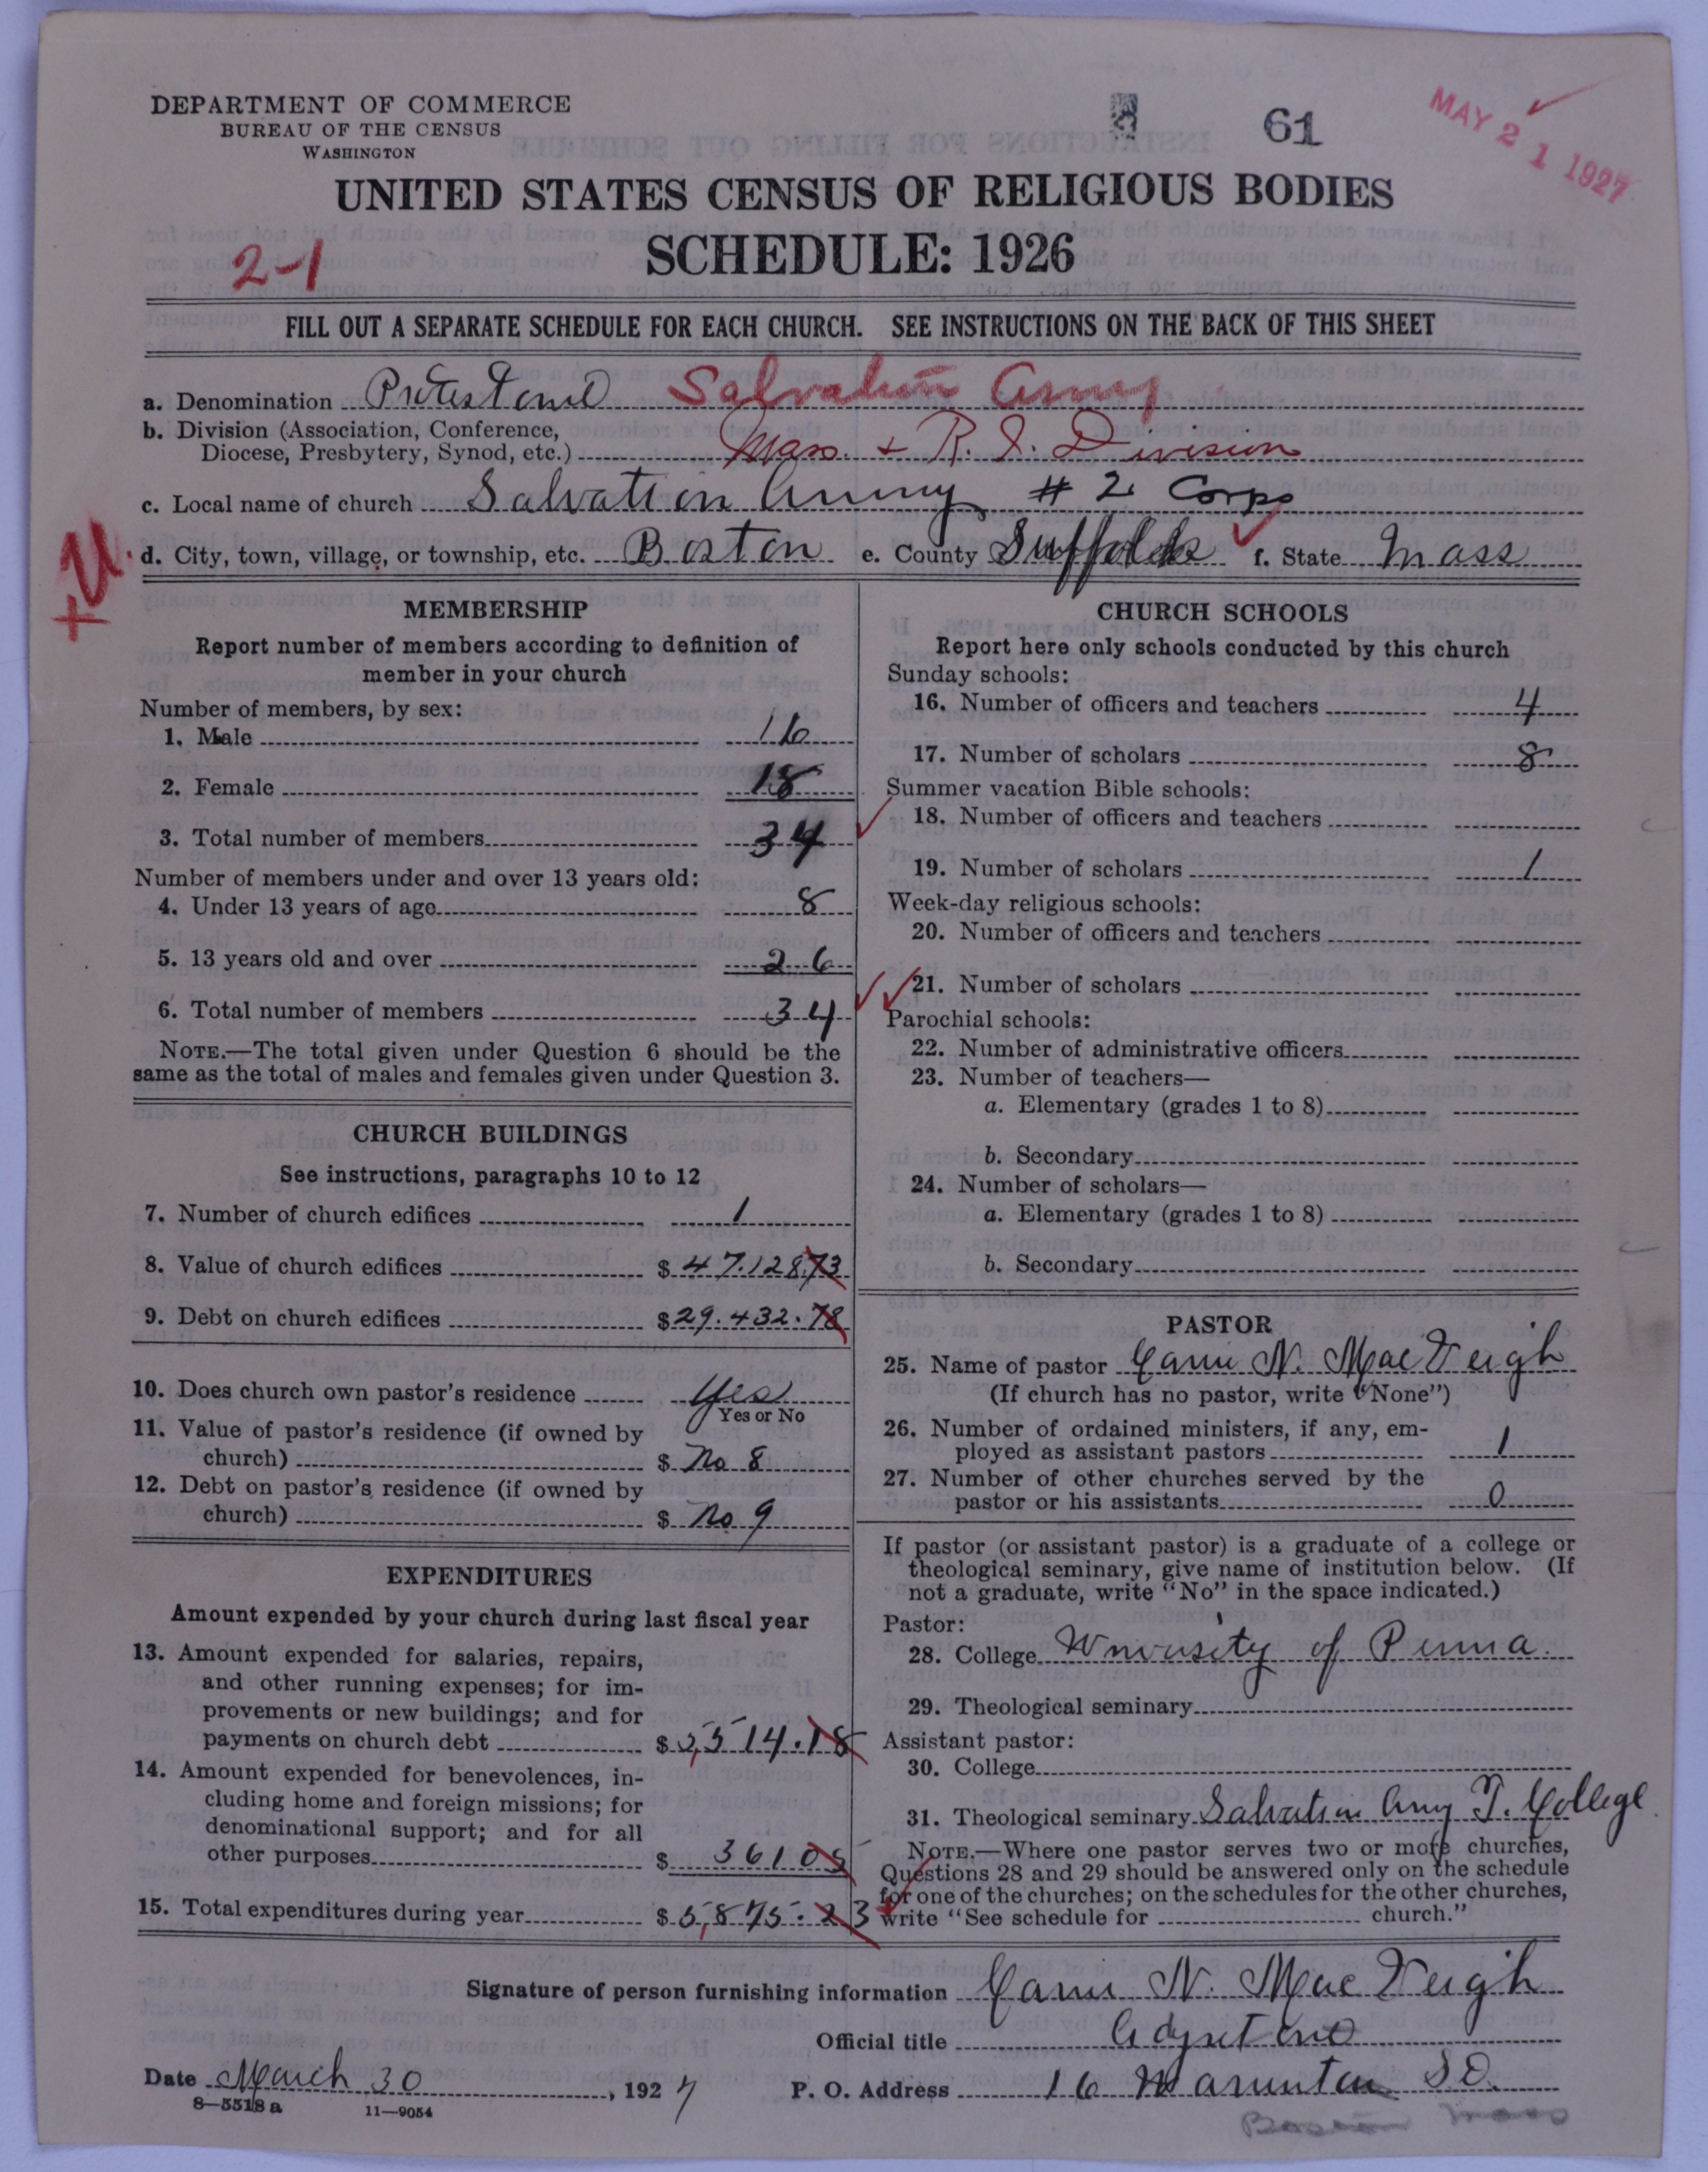 DEPARTMENT OF COMMERCE
BUREAU OF THE CENSUS
WASHINGTON
61
MAY 21 1927
UNITED STATES CENSUS OF RELIGIOUS BODIES
SCHEDULE: 1926
2-1
FILL OUT A SEPARATE SCHEDULE FOR EACH CHURCH. SEE INSTRUCTIONS ON THE BACK OF THIS SHEET
a. Denomination Protestant Salvation Army
b. Division (Association, Conference,
Diocese, Presbytery, Synod, etc.) Mass. + R. I. Division
c. Local name of church Salvation Army # 2 Corps
d. City, town, village, or township, etc. Boston e. County Suffolk f. State Mass
MEMBERSHIP
Report number of members according to definition of
member in your church
Number of members, by sex:
1. Male 16
2. Female 18
3. Total number of members 34
Number of members under and over 13 years old:
4. Under 13 years of age 8
5. 13 years old and over 26
6. Total number of members 34
NOTE.—The total given under Question 6 should be the
same as the total of males and females given under Question 3.
CHURCH BUILDINGS
See instructions, paragraphs 10 to 12
7. Number of church edifices 1
8. Value of church edifices $ 47.128.73
9. Debt on church edifices $ 29.432.78
10. Does church own pastor's residence Yes
Yes or No
11. Value of pastor's residence (if owned by
church) $ No 8
12. Debt on pastor's residence (if owned by
church) $ No 9
EXPENDITURES
Amount expended by your church during last fiscal year
13. Amount expended for salaries, repairs,
and other running expenses; for im-
provements or new buildings; and for
payments on church debt $ 5,514.18
14. Amount expended for benevolences, in-
cluding home and foreign missions; for
denominational support; and for all
other purposes $ 361 05
15. Total expenditures during year $ 5,875.23
CHURCH SCHOOLS
Report here only schools conducted by this church
Sunday schools:
16. Number of officers and teachers 4
17. Number of scholars 8
Summer vacation Bible schools:
18. Number of officers and teachers
19. Number of scholars 1
Week-day religious schools:
20. Number of officers and teachers
21. Number of scholars
Parochial schools:
22. Number of administrative officers
23. Number of teachers—
a. Elementary (grades 1 to 8)
b. Secondary
24. Number of scholars—
a. Elementary (grades 1 to 8)
b. Secondary
PASTOR
25. Name of pastor N. MacVeigh
(If church has no pastor, write "None")
26. Number of ordained ministers, if any, em-
ployed as assistant pastors 1
27. Number of other churches served by the
pastor or his assistants 0
If pastor (or assistant pastor) is a graduate of a college or
theological seminary, give name of institution below. (If
not a graduate, write "No" in the space indicated.)
Pastor:
28. College University of Penna.
29. Theological seminary
Assistant pastor:
30. College
31. Theological seminary Salvation Army T. College
NOTE.—Where one pastor serves two or more churches,
Questions 28 and 29 should be answered only on the schedule
for one of the churches; on the schedules for the other churches,
write "See schedule for church."
Signature of person furnishing information N. MacVeigh
Official title Adjutant
Date March 30, 1927 P. O. Address 16 SO.
Boston Mass
8—5518 a 11—9054